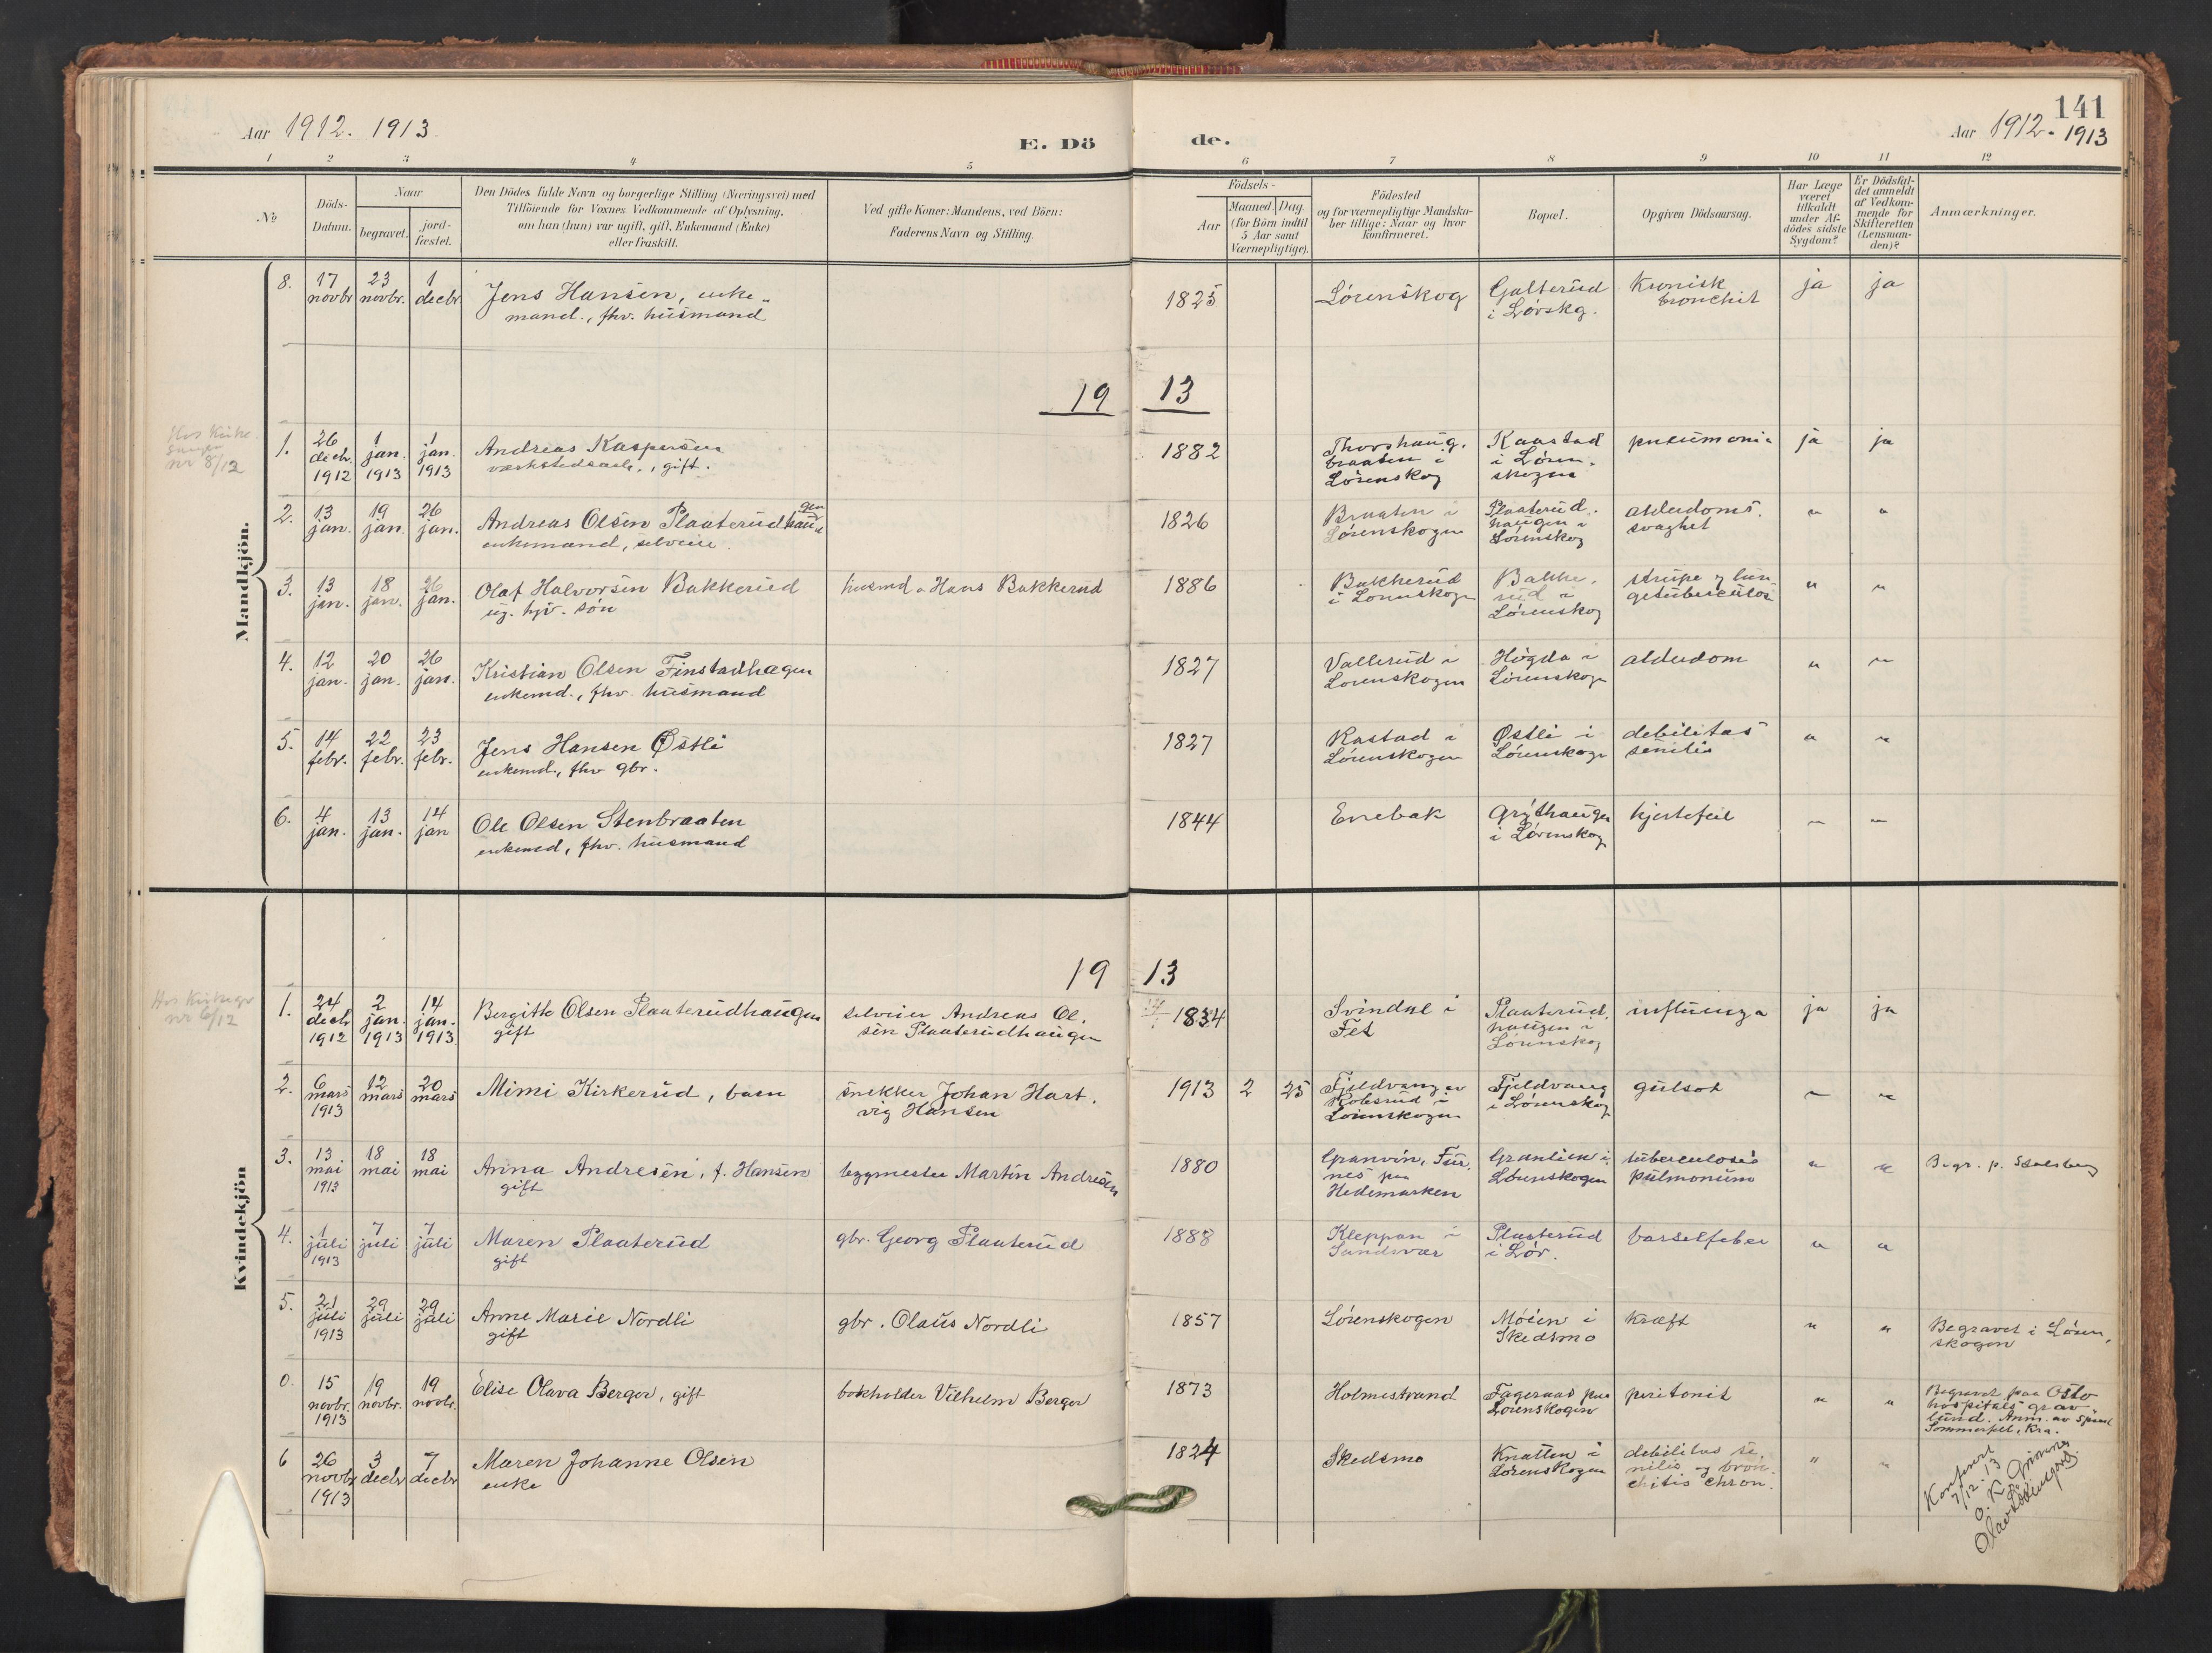 141
Aar 1912. 1913
E. Dö de.
Aar 1912. 1913
1 2 3 4 5 6 7 8 9 10 11 12
No
Döds-
Datum.
Naar
begravet.
jord-
fæstet.
Den Dödes fulde Navn og borgerlige Stilling (Næringsvei) med
Tilföiende for Voxnes Vedkommende af Oplysning,
om han (hun) var ugift, gift, Enkemand (Enke)
eller fraskilt.
Ved gifte Koner: Mandens, ved Börn:
Faderens Navn og Stilling.
Födsels-
Aar
Maaned
Dag
(for Börn indtil
5 Aar samt
Værnepligtige).
Födested
og for værnepligtige Mandska-
ber tillige: Naar og hvor
konfirmeret.
Bopæl.
Opgiven Dödsaarsag.
Har Læge
været
tilkaldt
under Af-
dödes sidste
Sygdom?
Er Dödsfal-
det anmeldt
af Vedkom-
mende for
Skifteretten
(Lensman-
den)?
Anmærkninger.
Mandkjön.
8. 17 novbr 23 novbr. 1 decbr
Jens Hansen, enke-
mand., fhv. husmand
1825
Lørenskog
Galterud
i Lørskg.
Kronisk
bronchit
ja ja
1913
nr 8/12
1. 26 decb. 1912 1 jan. 1913 1 jan. 1913
Andreas Kaspersen
værkstedsarb., gift.
1882
Thorshaug.
braaten i
Lørenskog
Kaastad
i Løren-
skogen
pneumonia
ja ja
2. 13 jan. 19 jan. 26 jan.
Andreas Olsen Plaaterudhaugen
enkemand, selveier.
1826
Braaten i
Lørenskogen
Plaaterud-
haugen i
Lørenskog
alderdoms-
svaghet
" "
3. 13 jan. 18 jan. 26 jan.
Olaf Halvorsen Bakkerud
ug. hjv. søn
husmd. Hans Bakkerud
1886
Bakkerud
i Lørenskogen
Bakke-
rud i
Lørenskog
strupe og lun-
getuberculos
" "
4. 12 jan. 20 jan. 26 jan.
Kristian Olsen Finstadhagen
enkemd., fhv. husmand
1827
Vallerud i
Lørenskogen
Høgda i
Lørenskogen
alderdom
" "
5. 14 febr. 22 febr. 23 febr.
Jens Hansen Østli
enkemd., fhv gbr.
1827
Kastad i
Lørenskogen
Østli i
Lørenskogen
debilitas
senilis
" "
6. 4 jan. 13 jan. 14 jan
Ole Olsen Stenbraaten
enkemd, fhv. husmand
1844
Enebak
Grythaugen
i Lørenskog
hjertefeil
" "
Kvindekjön
1913
Hos kirkegr
nr 6/12
1. 24 decb 1912 2 jan. 1913 14 jan. 1913
Bergitte Olsen Plaaterudhaugen
gift
selveier Andreas Ol-
sen Plaaterudhaugen
1834
Svindal i
Fet
Plaaterud-
haugen i
Lørenskog
influenza
ja ja
2. 6 mars 1913 12 mars 20 mars
Mimi Kirkerud, barn
snekker Johan Hart-
vig Hansen
1913 2 25
Fjeldvang av
Robsrud i
Lørenskogen
Fjeldvang
i Lørenskog
gulsot
" "
3. 13 mai 1913 18 mai 18 mai
Anna Andresen, f. Hansen
gift
bygmester Martin Andresen
1880
Granvin, Fur-
nes paa
Hedemarken
Granlien i
Lørenskogen
tuberculosis
pulmonum
" "
Begr. p.
4. 1 juli 1913 7 juli 7 juli
Maren Plaaterud
gift
gbr. Georg Plaaterud
1888
Kleppan i
Sandsvær
Plaaterud
i Lør.
barselfeber
" "
5. 21 juli 1913 29 juli 29 juli
Anne Marie Nordli
gift
gbr. Olaus Nordli
1857
Lørenskogen
Mosen i
Skedsmo
kræft
" "
Begravet i Løren-
skogen
0. 15 novbr. 1913 19 novbr. 19 novbr.
Elise Olava Berger, gift
bokholder Vilhelm Berger
1873
Holmestrand
Fagernes paa
Lørenskogen
peritonit
" "
Begravet paa Oslo
hospitals grav-
lund. Anm. av
Sommerfelt, Kra.
6 26 novbr 1913 3 decbr 7 decbr
Maren Johanne Olsen
enke
1824
Skedsmo
Knatten i
Lørenskogen
debilitas se-
nilis og bron-
chitis chron.
" "
Konferert
7/12-13
O. K. Grimnes